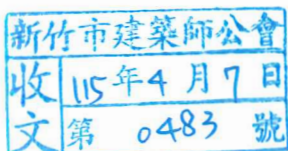 新竹市建築師公會
收文
115年4月7日
第 0483 號